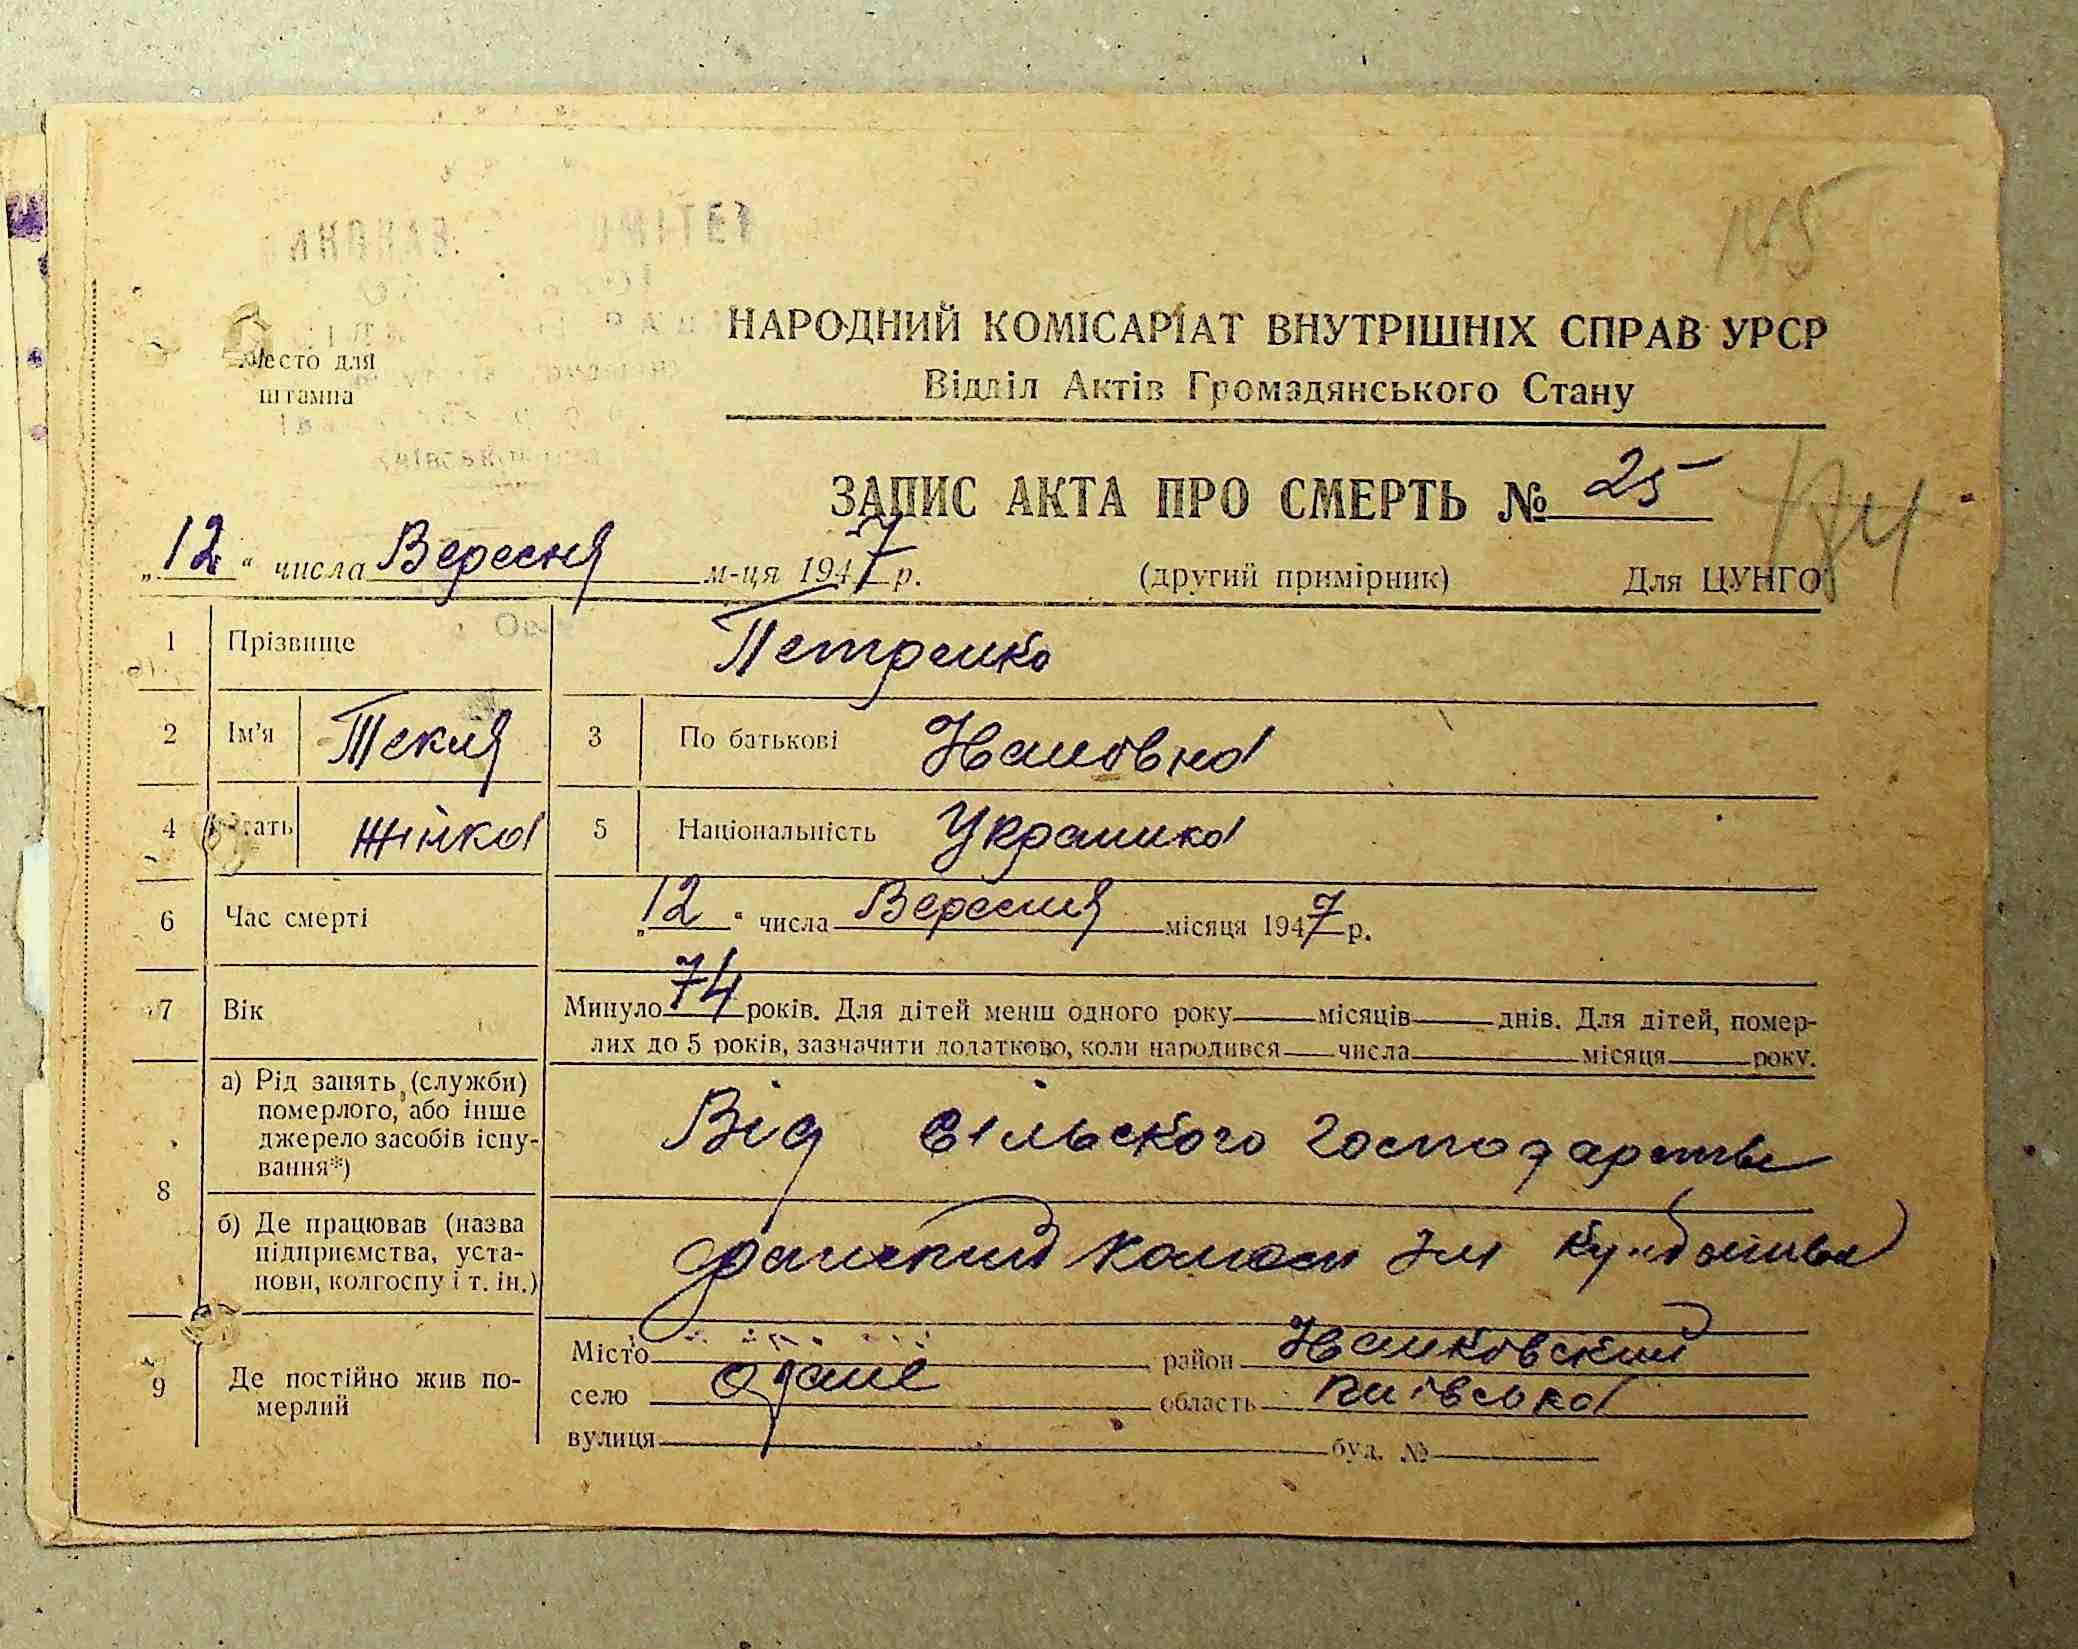 145
Место для
штампа
НАРОДНИЙ КОМІСАРІАТ ВНУТРІШНІХ СПРАВ УРСР
Відділ Актів Громадянського Стану
ЗАПИС АКТА ПРО СМЕРТЬ № 25
„12“ числа Вересня м-ця 1947 р.
(другий примірник) Для ЦУНГО
1 Прізвище Петренко
2 Ім'я Текля 3 По батькові
4 Стать Жінка 5 Національність Українка
6 Час смерті „12“ числа Вересня місяця 1947 р.
7 Вік Минуло 74 років. Для дітей менш одного року місяців днів. Для дітей, помер-
лих до 5 років, зазначити додатково, коли народився числа місяця року.
8 а) Рід занять (служби)
померлого, або інше
джерело засобів існу-
вання*)
Від сільского господарства
б) Де працював (назва
підприємства, уста-
нови, колгоспу і т. ін.)
9 Де постійно жив по-
мерлий
Місто район Іванковский
село область Київська
вулиця буд. №